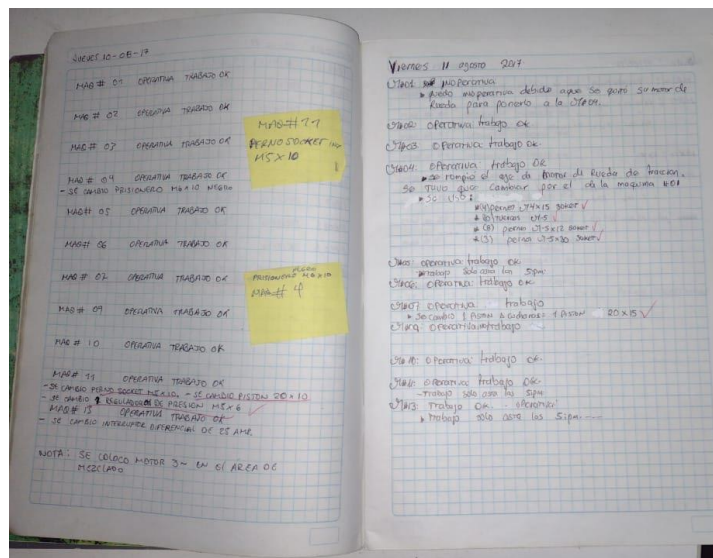 JUEVES 10-08-17
MAQ # 01 OPERATIVA TRABAJO OK
MAQ # 02 OPERATIVA TRABAJO OK
MAQ # 03 OPERATIVA TRABAJO OK
MAQ # 04 OPERATIVA TRABAJO OK
- SE CAMBIO PRISIONERO M6x10 NEGRO
MAQ# 05 OPERATIVA TRABAJO OK
MAQ# 06 OPERATIVA TRABAJO OK
MAQ # 07 OPERATIVA TRABAJO OK
MAQ # 09 OPERATIVA TRABAJO OK
MAQ # 10 OPERATIVA TRABAJO OK
MAQ# 11 OPERATIVA TRABAJO OK
- SE CAMBIO PERNO SOCKET M5x10. - SE CAMBIO PISTON 20x10
- SE CAMBIO 1 REGULADOR DE PRESION M5x6
MAQ# 13 OPERATIVA TRABAJO OK
- SE CAMBIO INTERRUPTOR DIFERENCIAL DE 25 AMP.
NOTA: SE COLOCO MOTOR 3~ EN EL ÁREA DE
MEZCLADO
MAQ#11
PERNO SOCKET
M5x10
PRISIONERO M6x10
MAQ# 4
Viernes 11 agosto 2017
inoperativa
quedo inoperativa debido a que se quito su motor de
rueda para ponerlo a la
operativa trabajo ok
operativa trabajo ok
operativa trabajo ok
se rompio el eje de motor de rueda de traccion.
se tuvo que cambiar por el de la maquina #01
se uso:
(4) pernos M4x15 soket
(6) tuercas M-5
(8) perno M-5x12 soket
(3) perno M-5x30 soket
operativa trabajo ok
trabajo solo asta las 5ipm.
operativa trabajo ok
operativa trabajo
se cambio 1 piston 20x15
operativa trabajo
operativa trabajo ok
operativa trabajo ok
trabajo solo asta las 5ipm
trabajo ok. operativa
trabajo solo asta las 5ipm.